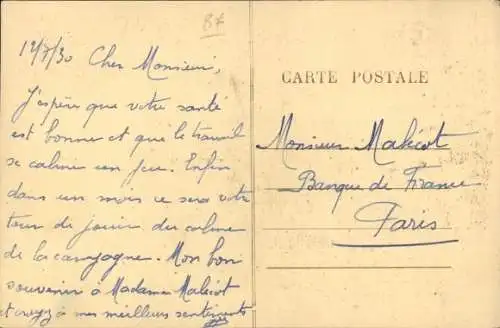 87
12/7/30 Cher Monsieur,
J'espère que votre santé
est bonne et que le travail
se calme un peu. Enfin
dans un mois ce sera votre
tour de jouir du calme
de la campagne. Mon bon
souvenir à Madame Malicot
et croyez à mes meilleurs sentiments
CARTE POSTALE
Monsieur Malicot
Banque de France
Paris